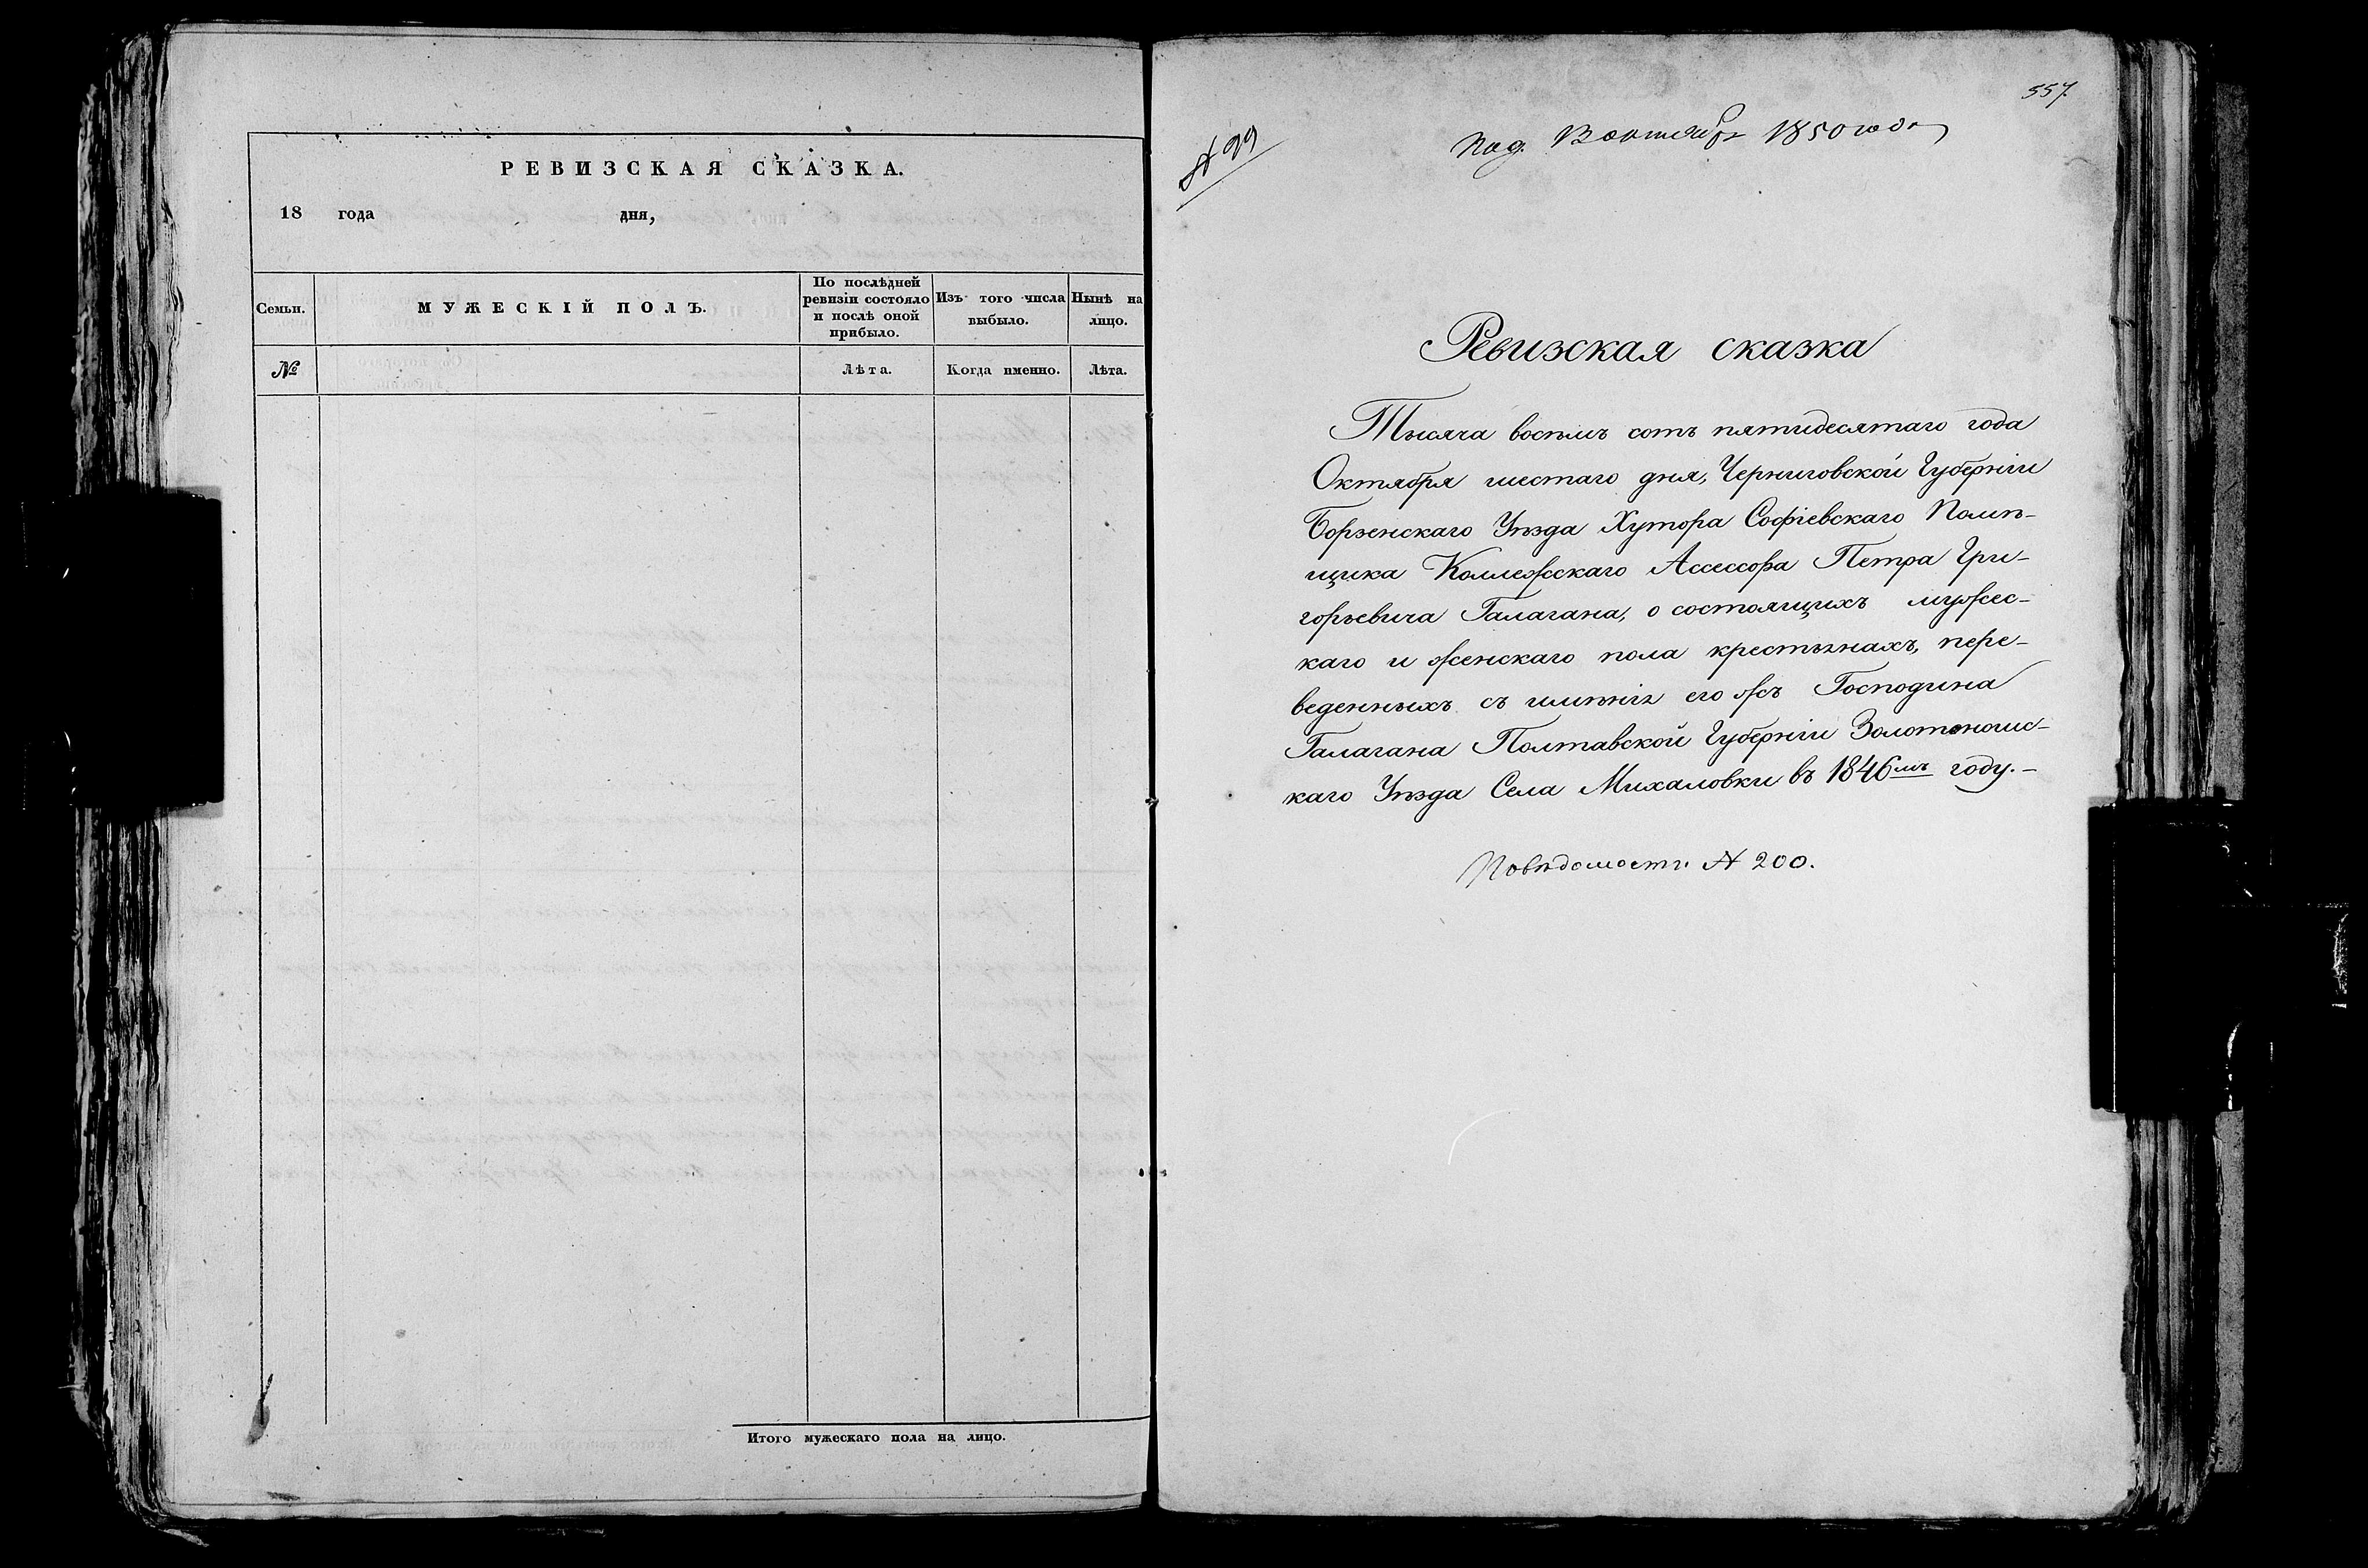 РЕВИЗСКАЯ СКАЗКА.
18 года дня,
Семьи.
МУЖЕСКІЙ ПОЛЪ.
По послѣдней
ревизіи состояло
и послѣ оной
прибыло.
Изъ того числа
выбыло.
Нынѣ на
лицо.
№
Лѣта.
Когда именно.
Лѣта.
Итого мужескаго пола на лицо.
557.
№ 99
Под. 1850 года
Ревизская сказка
Тысяча восемъ сотъ пятидесятаго года
Октября шестаго дня, Черниговской Губерніи
Борзенскаго Уѣзда Хутора Софіевскаго Помѣ-
щика Коллежскаго Ассессора Петра Гри-
горьевича Галагана, о состоящихъ мужес-
каго и женскаго пола крестьянахъ, пере-
веденныхъ съ имѣнія его жъ Господина
Галагана Полтавской Губерніи Золотоношс-
каго Уѣзда Села Михаловки въ 1846мъ году.-
№ 200.